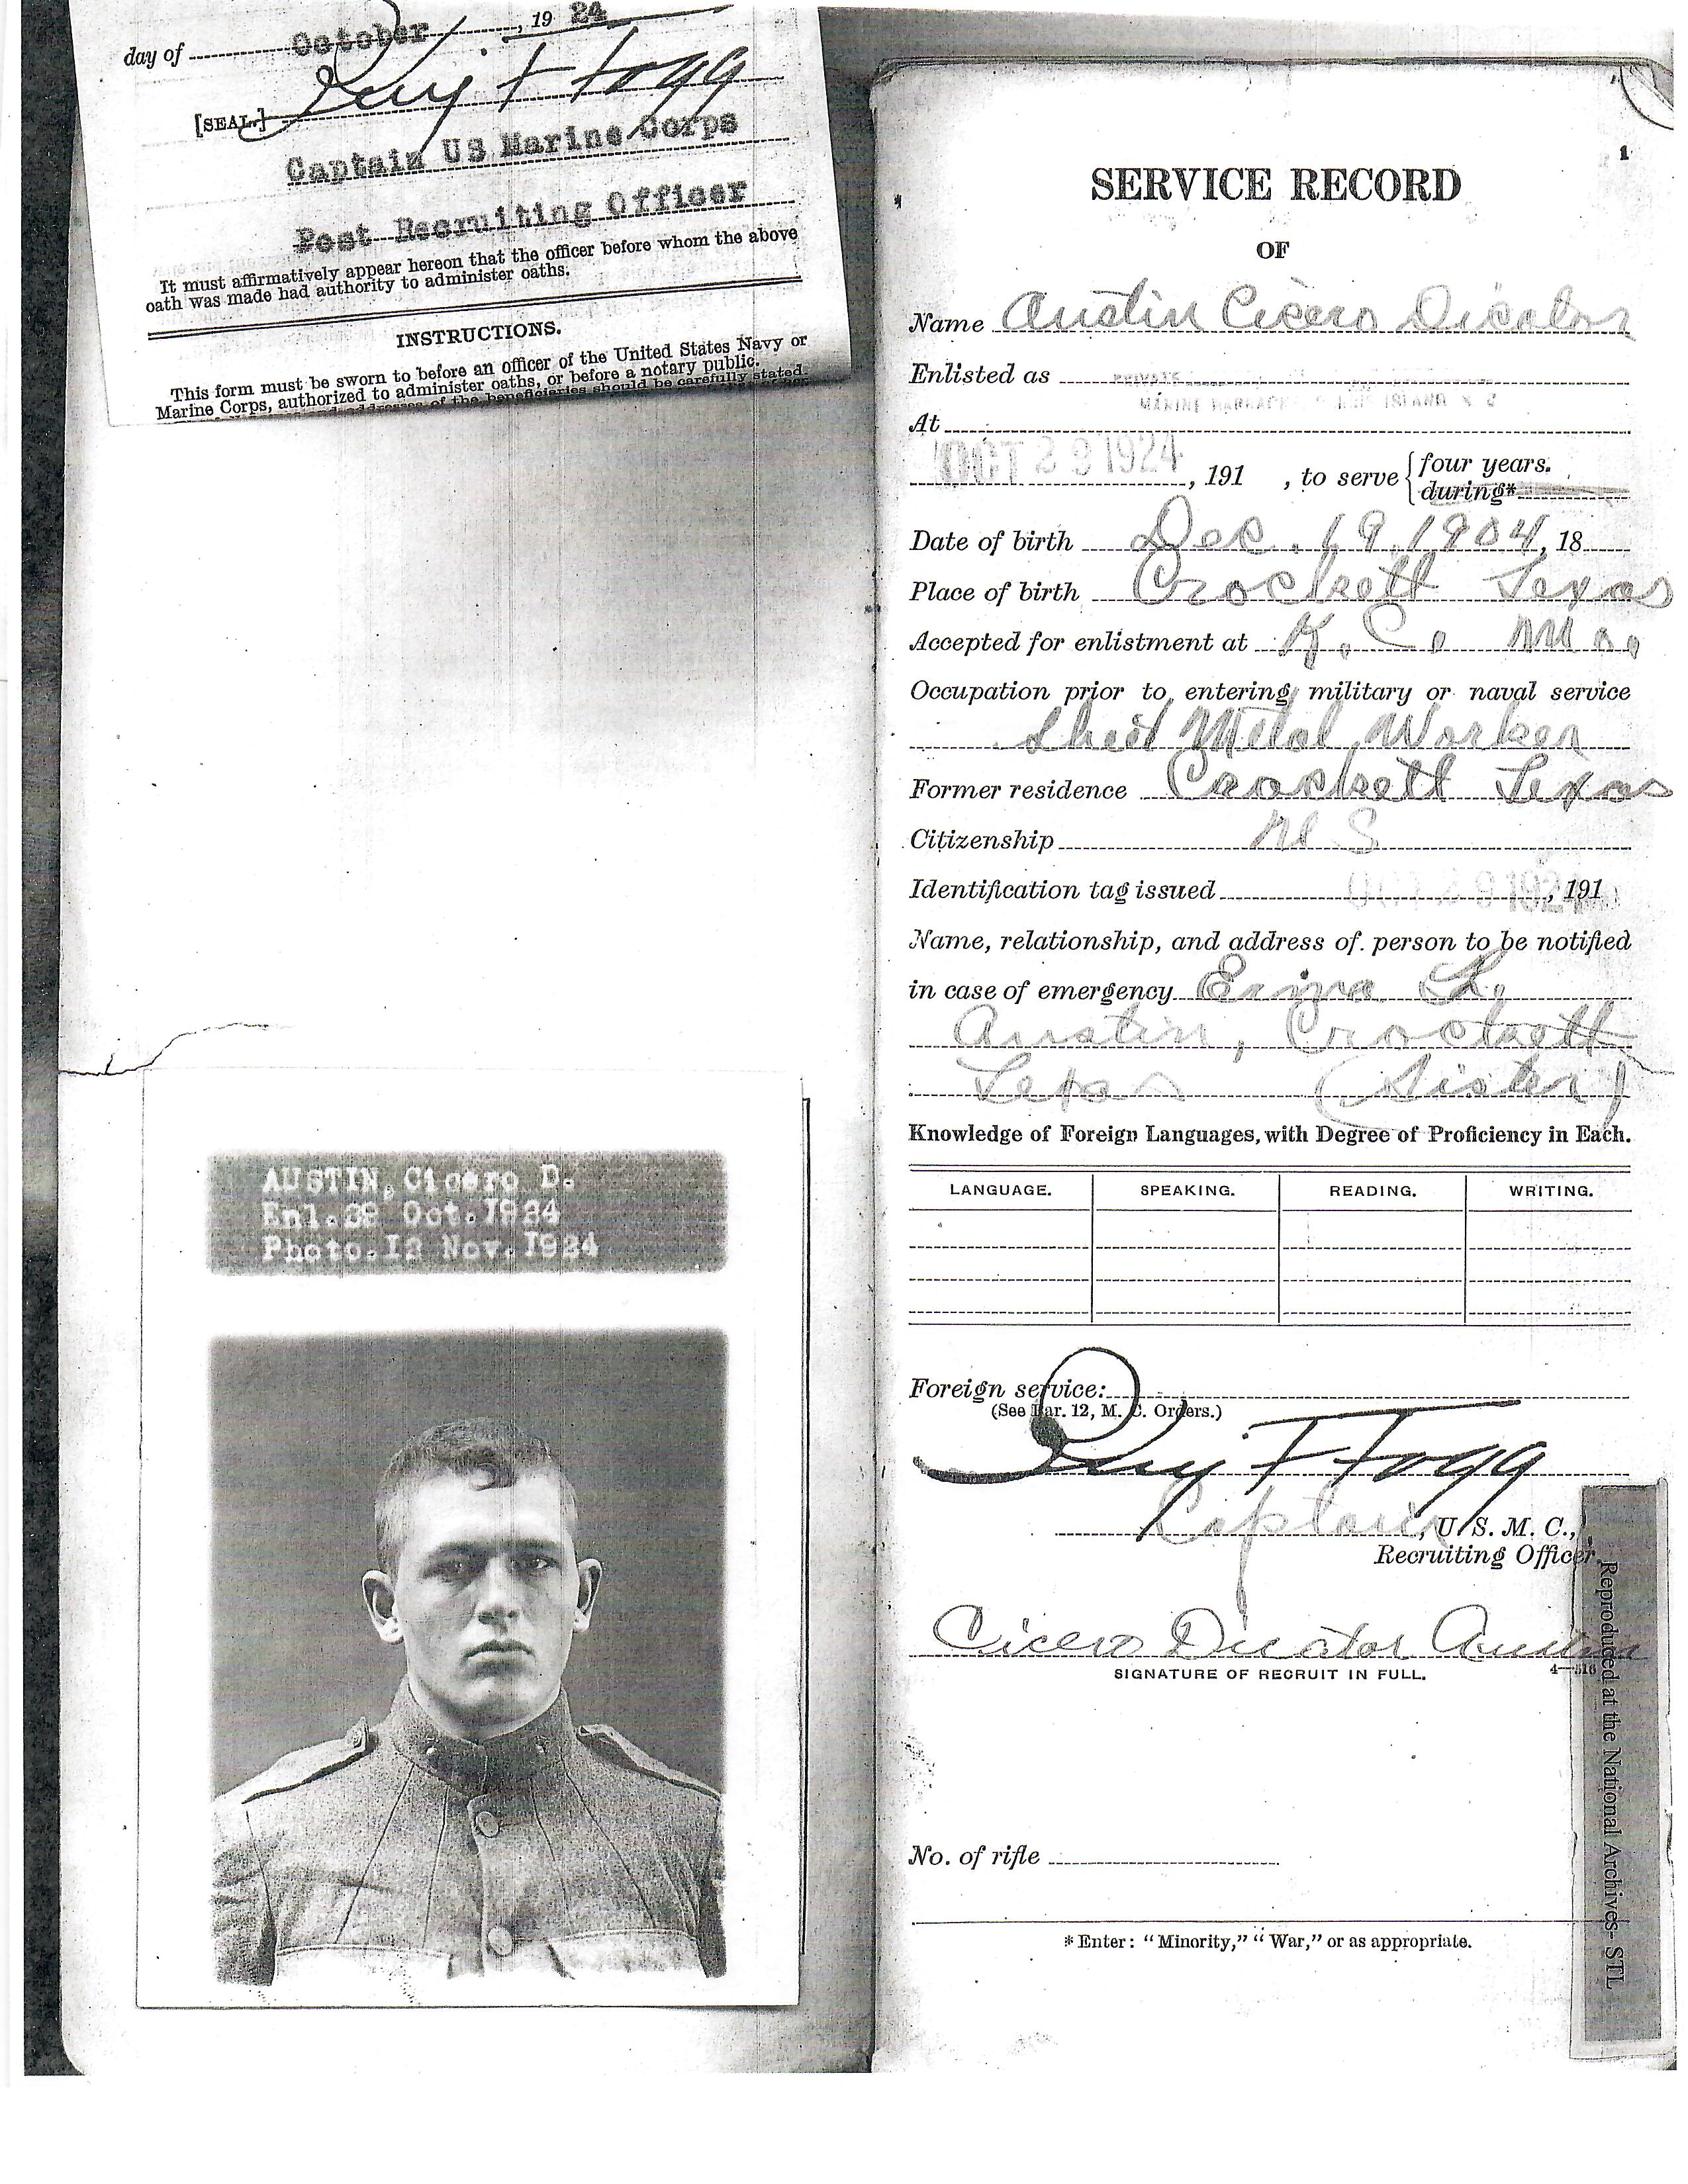 day of October, 19 24
[SEAL.]
Captain US Marine Corps
Post Recruiting Officer
It must affirmatively appear hereon that the officer before whom the above
oath was made had authority to administer oaths.
INSTRUCTIONS.
This form must be sworn to before an officer of the United States Navy or
Marine Corps, authorized to administer oaths, or before a notary public.
addresses of the beneficiaries should be carefully stated.
AUSTIN, Cicero D.
Enl. Oct. 1924
Photo. Nov. 1924
1
SERVICE RECORD
OF
Name Austin Cicero Dicator
Enlisted as PRIVATE
MARINE BARRACKS ISLAND S C
At
OCT 1924, 191 , to serve four years.
during*
Date of birth Dec. 19, 1904, 18
Place of birth Crockett Texas
Accepted for enlistment at K. C. Mo.
Occupation prior to entering military or naval service
Sheet Metal Worker
Former residence Crockett Texas
Citizenship U S
Identification tag issued OCT 1924, 191
Name, relationship, and address of person to be notified
in case of emergency L.
Austin, Crockett
Texas (Sister)
Knowledge of Foreign Languages, with Degree of Proficiency in Each.
LANGUAGE. SPEAKING. READING. WRITING.
Foreign service:
(See Par. 12, M. C. Orders.)
Fogg
Captain, U. S. M. C.,
Recruiting Officer.
Cicero Dicator Austin
SIGNATURE OF RECRUIT IN FULL.
4—516
No. of rifle
* Enter: "Minority," "War," or as appropriate.
Reproduced at the National Archives- STL